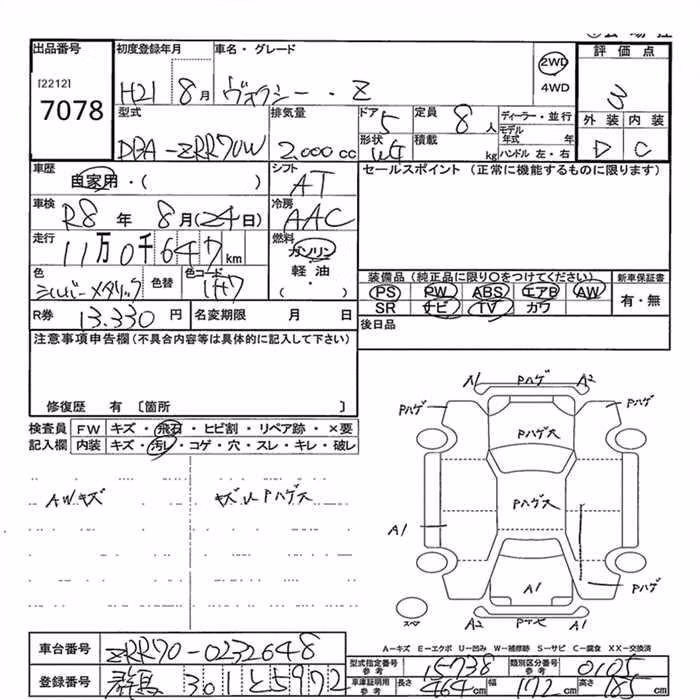 出品番号 初度登録年月 車名・グレード 評価点
[2212] 7078
H21 8月 ヴォクシー・Z 2WD 4WD 3
型式 排気量 ドア 定員 ディーラー・並行 外装 内装
DBA-ZRR70W 2,000cc 5 8人 モデル年式 年 D C
形状 積載 kg ハンドル 左・右
車歴 シフト セールスポイント (正常に機能するものに限ります)
自家用・( ) AT
車検 冷房
R8年 8月(24日) AAC
走行 燃料
11万0千647km ガソリン
軽油
・( )
色 色替 色コード 装備品 (純正品に限り○をつけてください) 新車保証書
シルバーメタリック 1F7 PS PW ABS エアB AW 有・無
R券 13.330円 名変期限 月 日 SR ナビ TV カワ
注意事項申告欄(不具合内容等は具体的に記入して下さい) 後日品
修復歴 有 〔箇所 〕
検査員 FW キズ・飛石・ヒビ割・リペア跡・×要
記入欄 内装 キズ・汚レ・コゲ・穴・スレ・キレ・破レ
A1 Pハゲ A2
Pハゲ Pハゲ
Pハゲ大
AWキズ キズUPハゲ大 Pハゲ大
A1
Pハゲ
A1
スペア A2 A1
A=キズ E=エクボ U=凹み W=補修跡 S=サビ C=腐食 XX=交換済
車台番号 ZRR70-0232648
型式指定番号 参考 15738 類別区分番号 参考 0105
登録番号 群馬 301 と 5972
車庫証明用 参考 長さ 464cm 幅 172cm 高さ 185cm